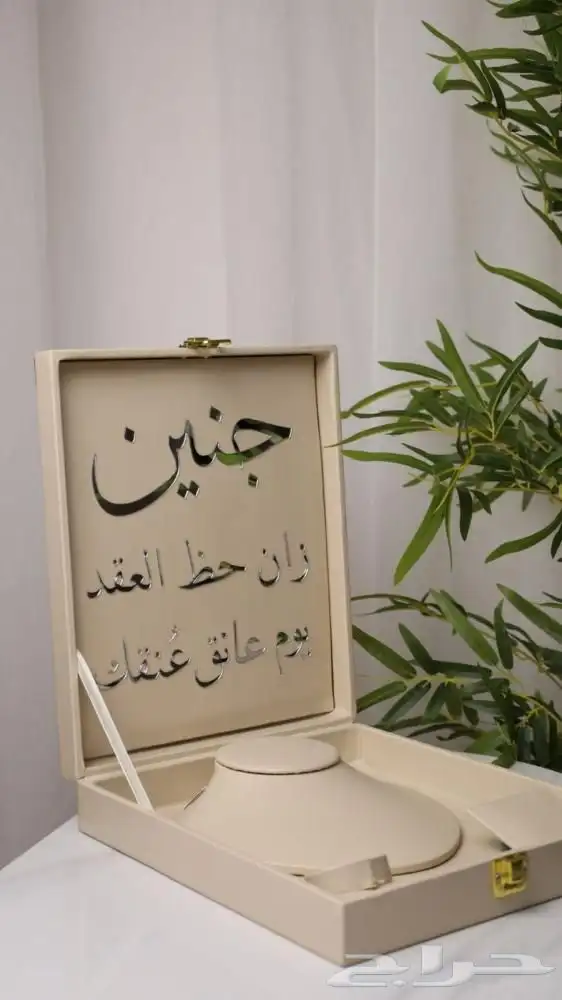 جنين
زان حظ العقد
يوم عانق عُنقك
حراج